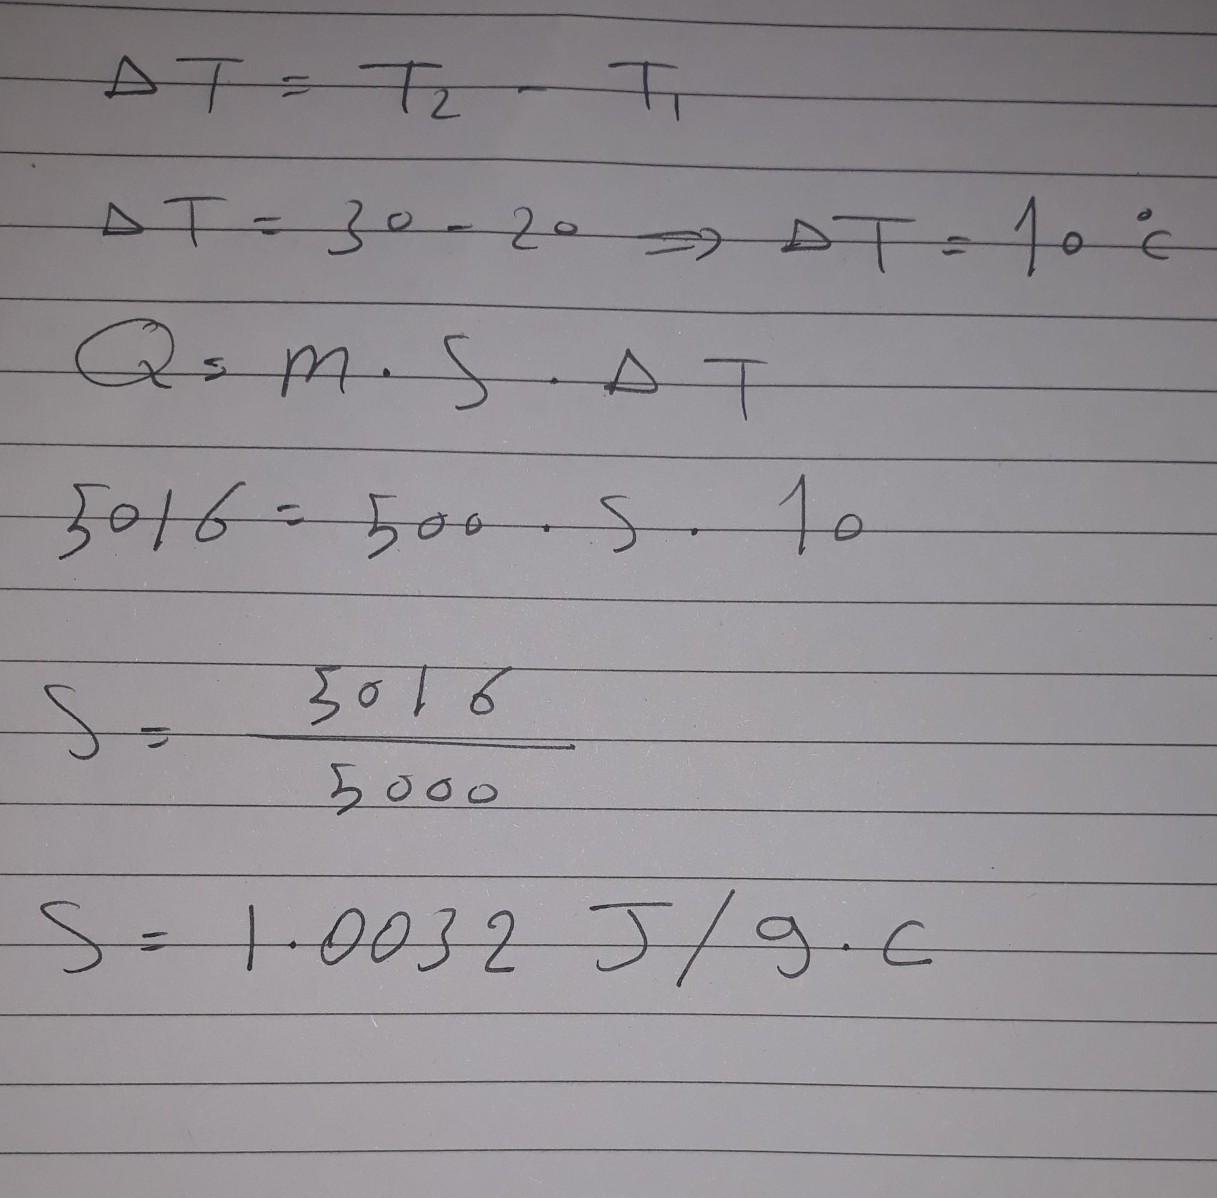 ΔT = T₂ - T₁
ΔT = 30 - 20 ⇒ ΔT = 10 °C
Q = m . S . ΔT
5016 = 500 . S . 10
S = 5016 / 5000
S = 1.0032 J/g.C